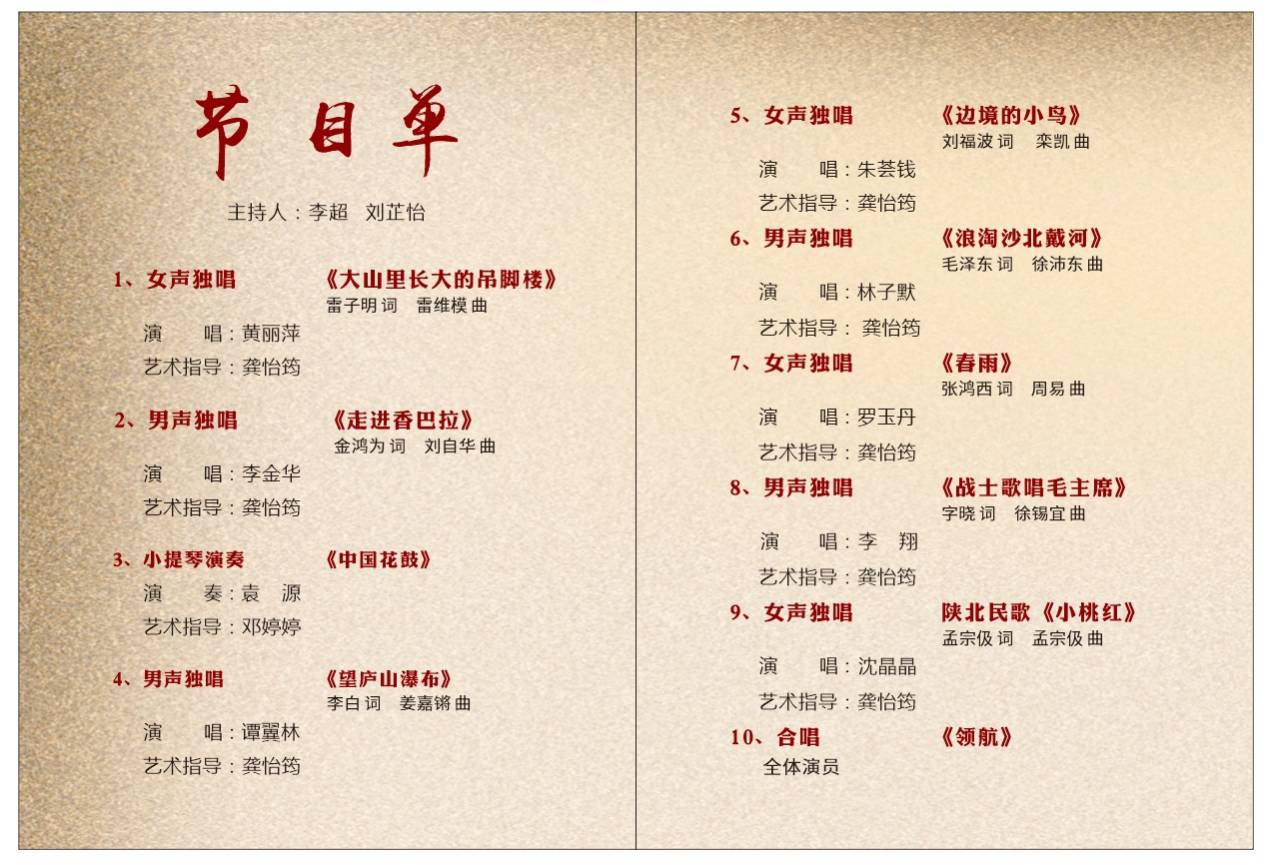 节目单
主持人：李超 刘芷怡
1、女声独唱 《大山里长大的吊脚楼》
雷子明 词 雷维模 曲
演 唱：黄丽萍
艺术指导：龚怡筠
2、男声独唱 《走进香巴拉》
金鸿为 词 刘自华 曲
演 唱：李金华
艺术指导：龚怡筠
3、小提琴演奏 《中国花鼓》
演 奏：袁 源
艺术指导：邓婷婷
4、男声独唱 《望庐山瀑布》
李白 词 姜嘉锵 曲
演 唱：谭翼林
艺术指导：龚怡筠
5、女声独唱 《边境的小鸟》
刘福波 词 栾凯 曲
演 唱：朱荟钱
艺术指导：龚怡筠
6、男声独唱 《浪淘沙北戴河》
毛泽东 词 徐沛东 曲
演 唱：林子默
艺术指导： 龚怡筠
7、女声独唱 《春雨》
张鸿西 词 周易 曲
演 唱：罗玉丹
艺术指导：龚怡筠
8、男声独唱 《战士歌唱毛主席》
字晓 词 徐锡宜 曲
演 唱：李 翔
艺术指导：龚怡筠
9、女声独唱 陕北民歌《小桃红》
孟宗伋 词 孟宗伋 曲
演 唱：沈晶晶
艺术指导：龚怡筠
10、合唱 《领航》
全体演员